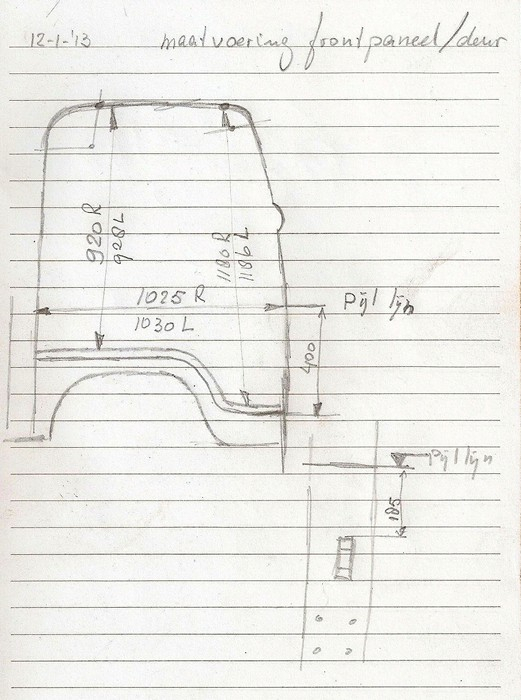 12-1-'13
maatvoering frontpaneel/deur
920 R
928 L
1180 R
1186 L
1025 R
1030 L
Pijl lijn
400
Pijl lijn
185